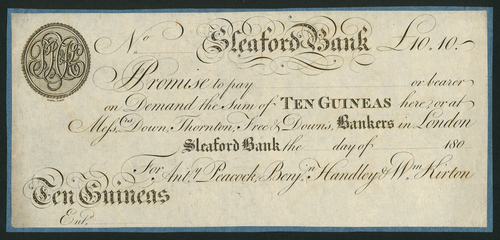 No Sleaford Bank £10,10.-
I Promise to pay or bearer
on Demand the Sum of TEN GUINEAS here or at
Messrs Down, Thornton, Free & Downs, Bankers in London
Sleaford Bank the day of 180
For Anty Peacock, Benjn Handley & Wm Kirton
Ten Guineas
Entd